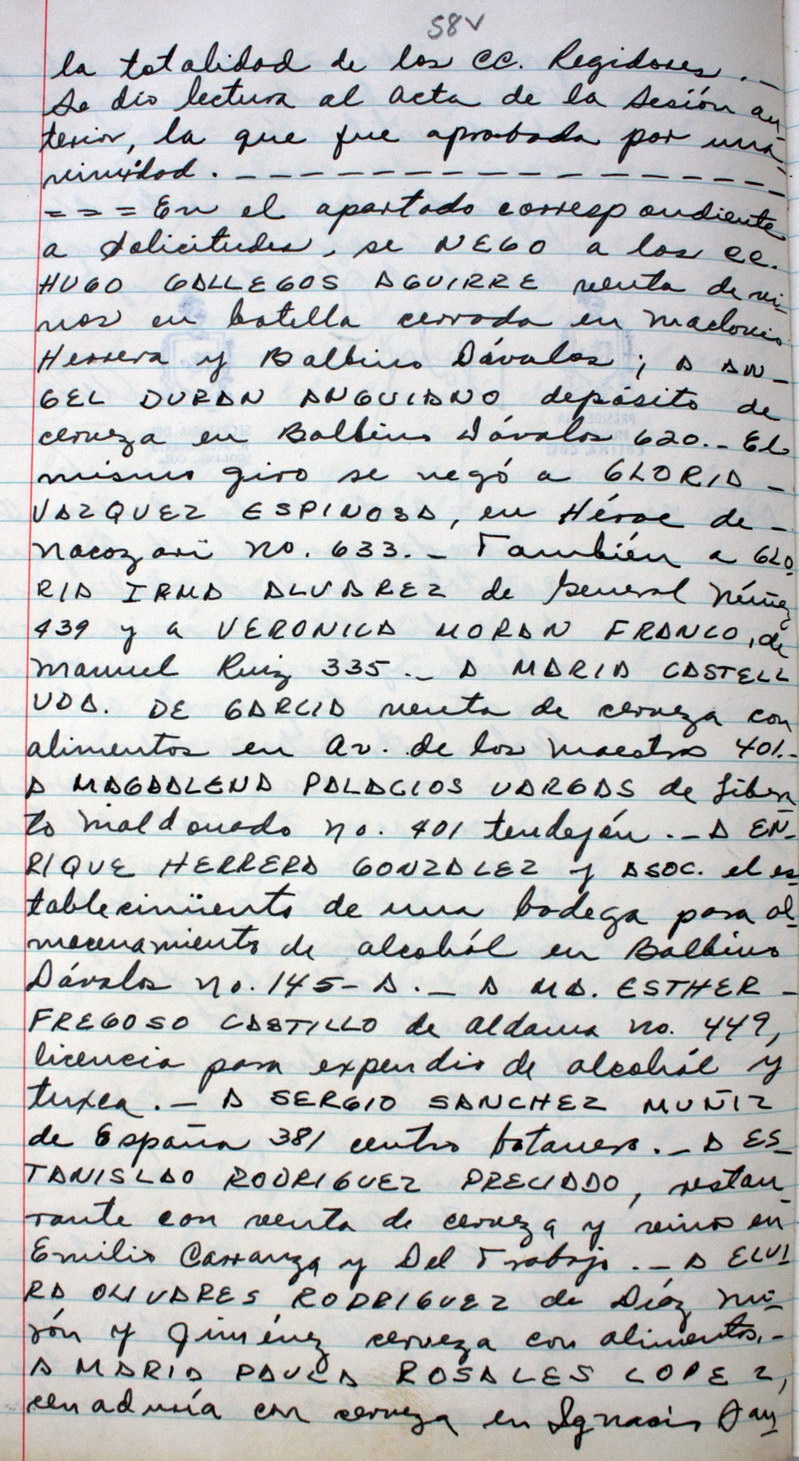 58v
la totalidad de los CC. Regidores. -
Se dio lectura al Acta de la Sesión an
terior, la que fue aprobada por una
nimidad. - - - - - - - - - - - - - - - -
= = = En el apartado correspondiente
a solicitudes, se NEGO a los CC.
HUGO GALLEGOS AGUIRRE venta de vi-
nos en botella cerrada en Maclovio
Herrera y Balbino Dávalos; A AN-
GEL DURAN ANGUIANO depósito de
cerveza en Balbino Dávalos 620.- El
mismo giro se negó a GLORIA -
VAZQUEZ ESPINOSA, en Héroe de -
Nacozari No. 633. - También a GLO
RIA IRMA ALVAREZ de General Núñez
439 y a VERONICA MORAN FRANCO, de
Manuel Ruiz 335.- A MARIA CASTELL
VDA. DE GARCIA venta de cerveza con
alimentos en Av. de los Maestros 401.-
A MAGDALENA PALACIOS VARGAS de Libera
to Maldonado No. 401 tendejón. - A EN-
RIQUE HERRERA GONZALEZ y ASOC. el es
tablecimiento de una bodega para al-
macenamiento de alcohól en Balbino
Dávalos No. 145-A. - A MA. ESTHER -
FREGOSO CASTILLO de Aldama No. 449,
licencia para expendio de alcohól y
tuxca. - A SERGIO SANCHEZ MUÑIZ
de España 381 centro botanero. - A ES-
TANISLAO RODRIGUEZ PRECIADO, restau
rante con venta de cerveza y vinos en
Emilio Carranza y Del Trabajo. - A ELVI
RA OLIVARES RODRIGUEZ de Díaz Mi-
rón y Jiménez cerveza con alimentos.-
A MARIA PAULA ROSALES LOPEZ,
cenaduría con cerveza en Ignacio San